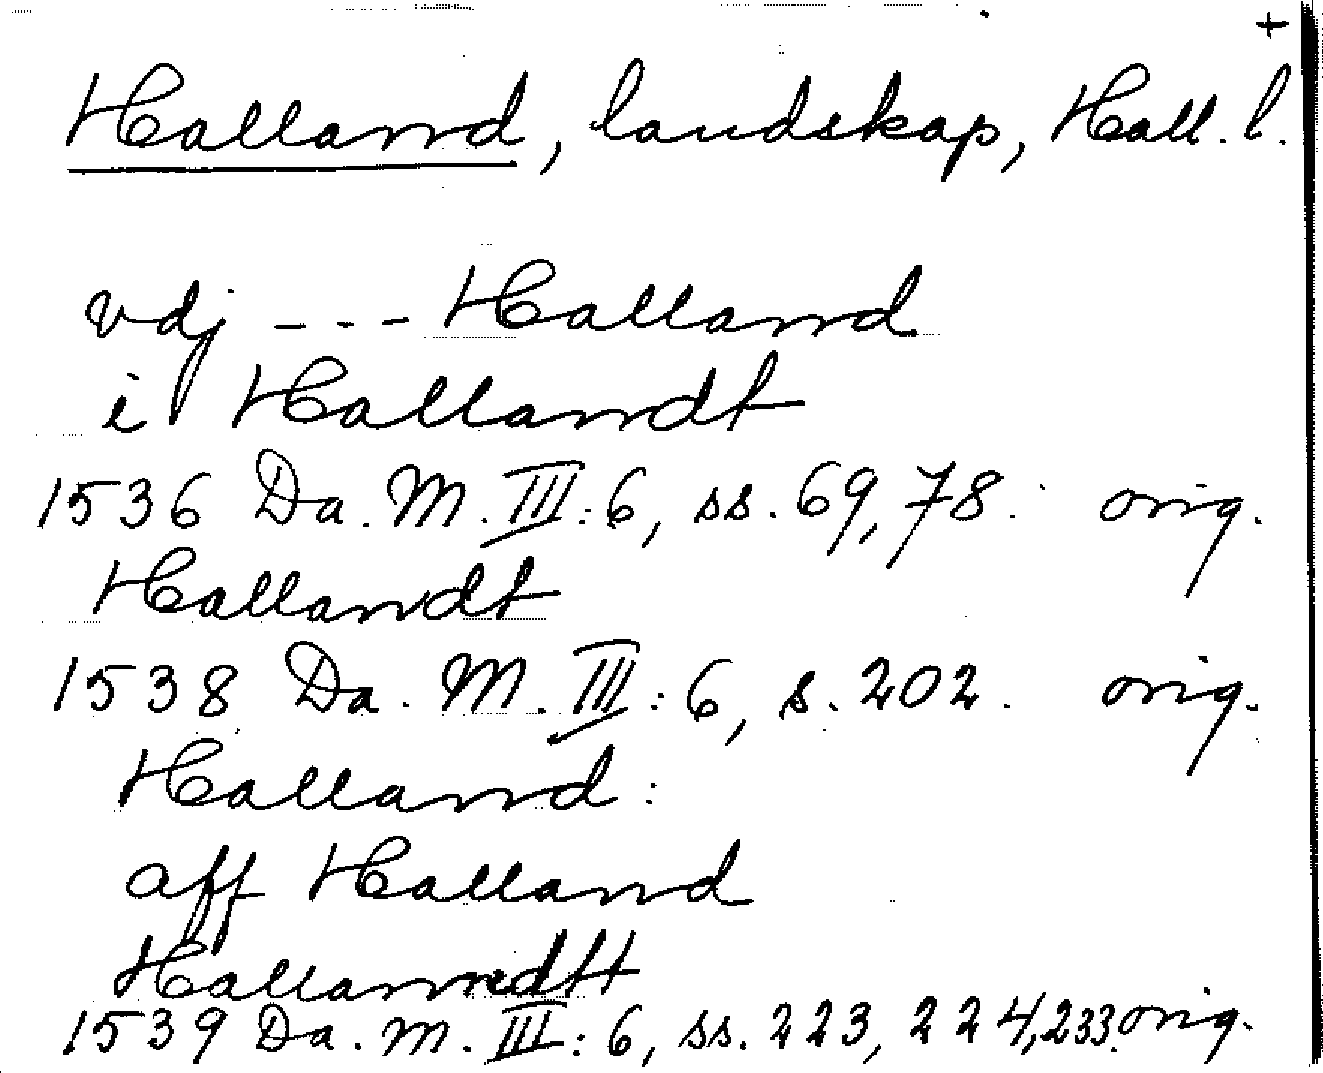 +
Halland, landskap, Hall. l.
vdj --- Halland
i Hallandt
1536 Da. M. III:6, ss. 69, 78. orig.
Hallandt
1538 Da. M. III:6, s. 202. orig.
Halland:
aff Halland
Hallanndtt
1539 Da. M. III:6, ss. 223, 224, 233. orig.